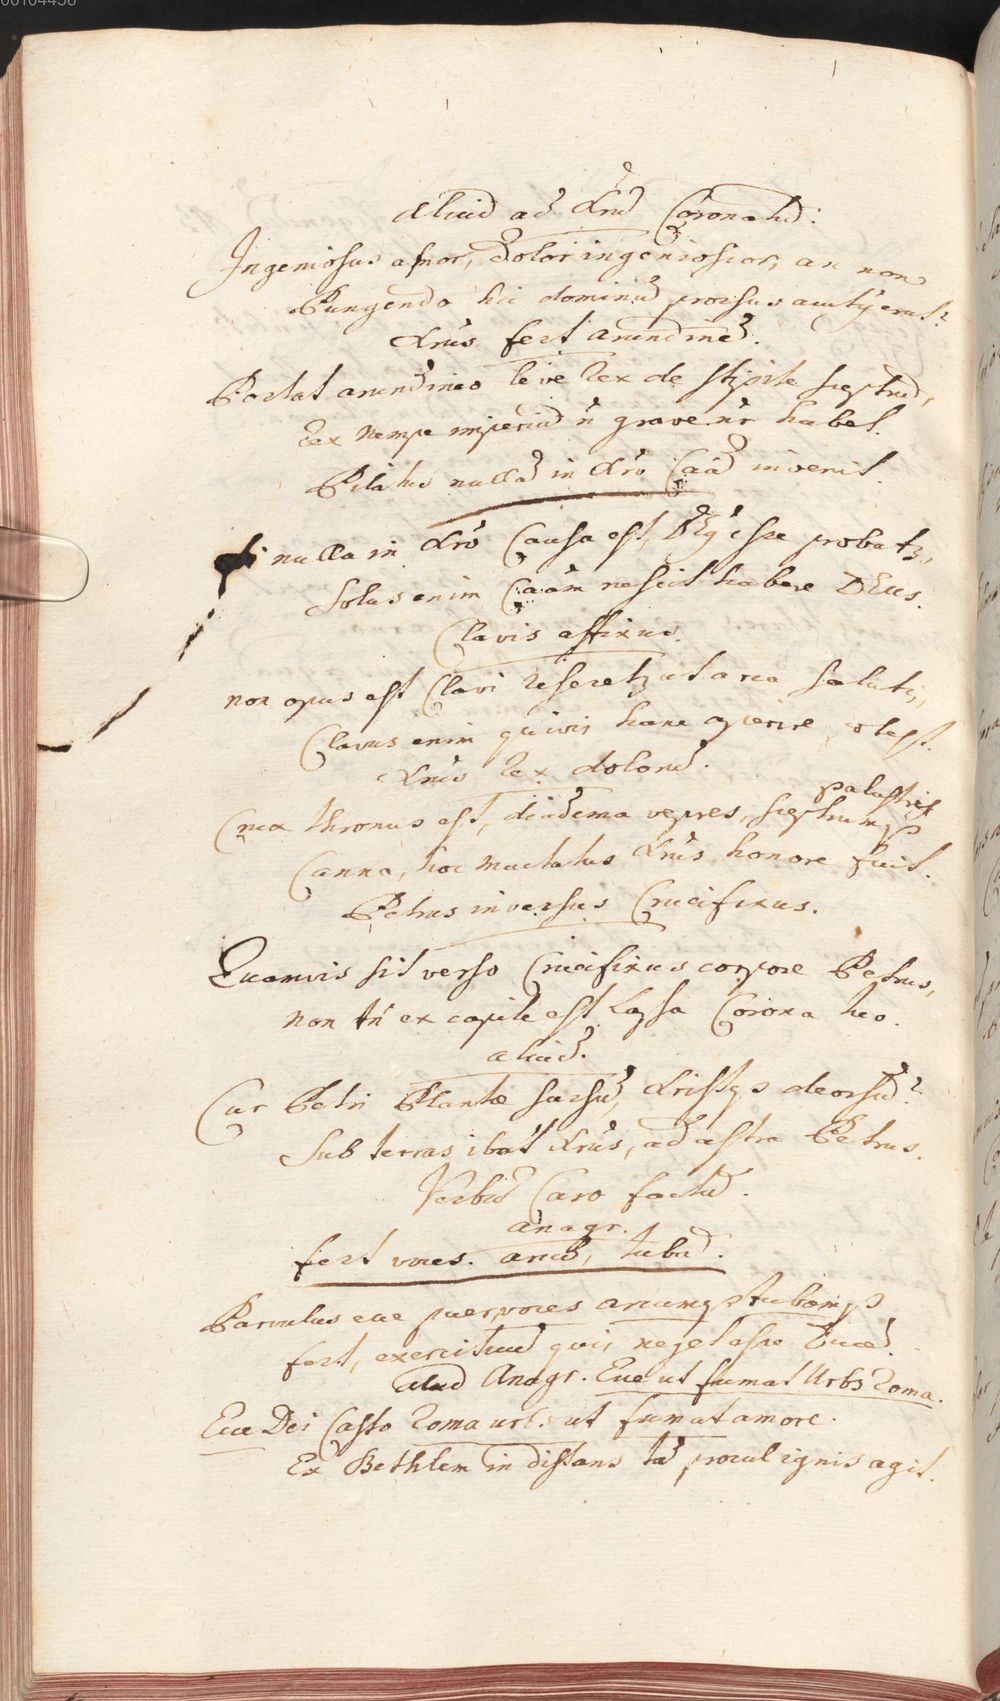 00104456
Aliud ad Xrũ Coronatũ:
Ingeniosus amor, dolor ingeniosior, an non
Pungendo hic dominũ prorsus acutq erat?
Xrus fert arundinẽ.
Portat arundineo leve Rex de stipite sceptrũ,
Rex nempe imperiũ ñ grave nr habet.
Pilatus nullã in Xro Caã invenit.
Si nulla in Xro Causa est, DEq esse probatz,
Solus enim Caãm nescit habere DEus.
Clavis affixus.
non opus est Clavi reseretz ut arca salutis,
Clavus enim quivis hanc aperire potest.
Xrus Rex dolorũ.
palustris
Crux thronus est, diadema vepres, sceptrumqz
Canna, hoc mactatus Xrus honore fuit.
Petrus inversus Crucifixus.
Quamvis sit verso Crucifixus corpore Petrus,
non tñ ex capite est lapsa Corona tuo.
aliud.
Cur Petri Plantæ sursũ, Xristqz deorsũ?
Sub terras ibat Xrus, ad astra Petrus.
Verbũ Caro factũ.
anagr.
fert voces. arcũ, tubũ.
Parvulus ecce puer voces arcumqz tubamqz
fert, exercituũ quis neget esse Ducẽ.
aliud Anagr. Ecce ut fumat Urbs Roma.
Ecce Dei Casto Roma urbs ut fumat amore.
Ex Bethlem in distans tã procul ignis agit.